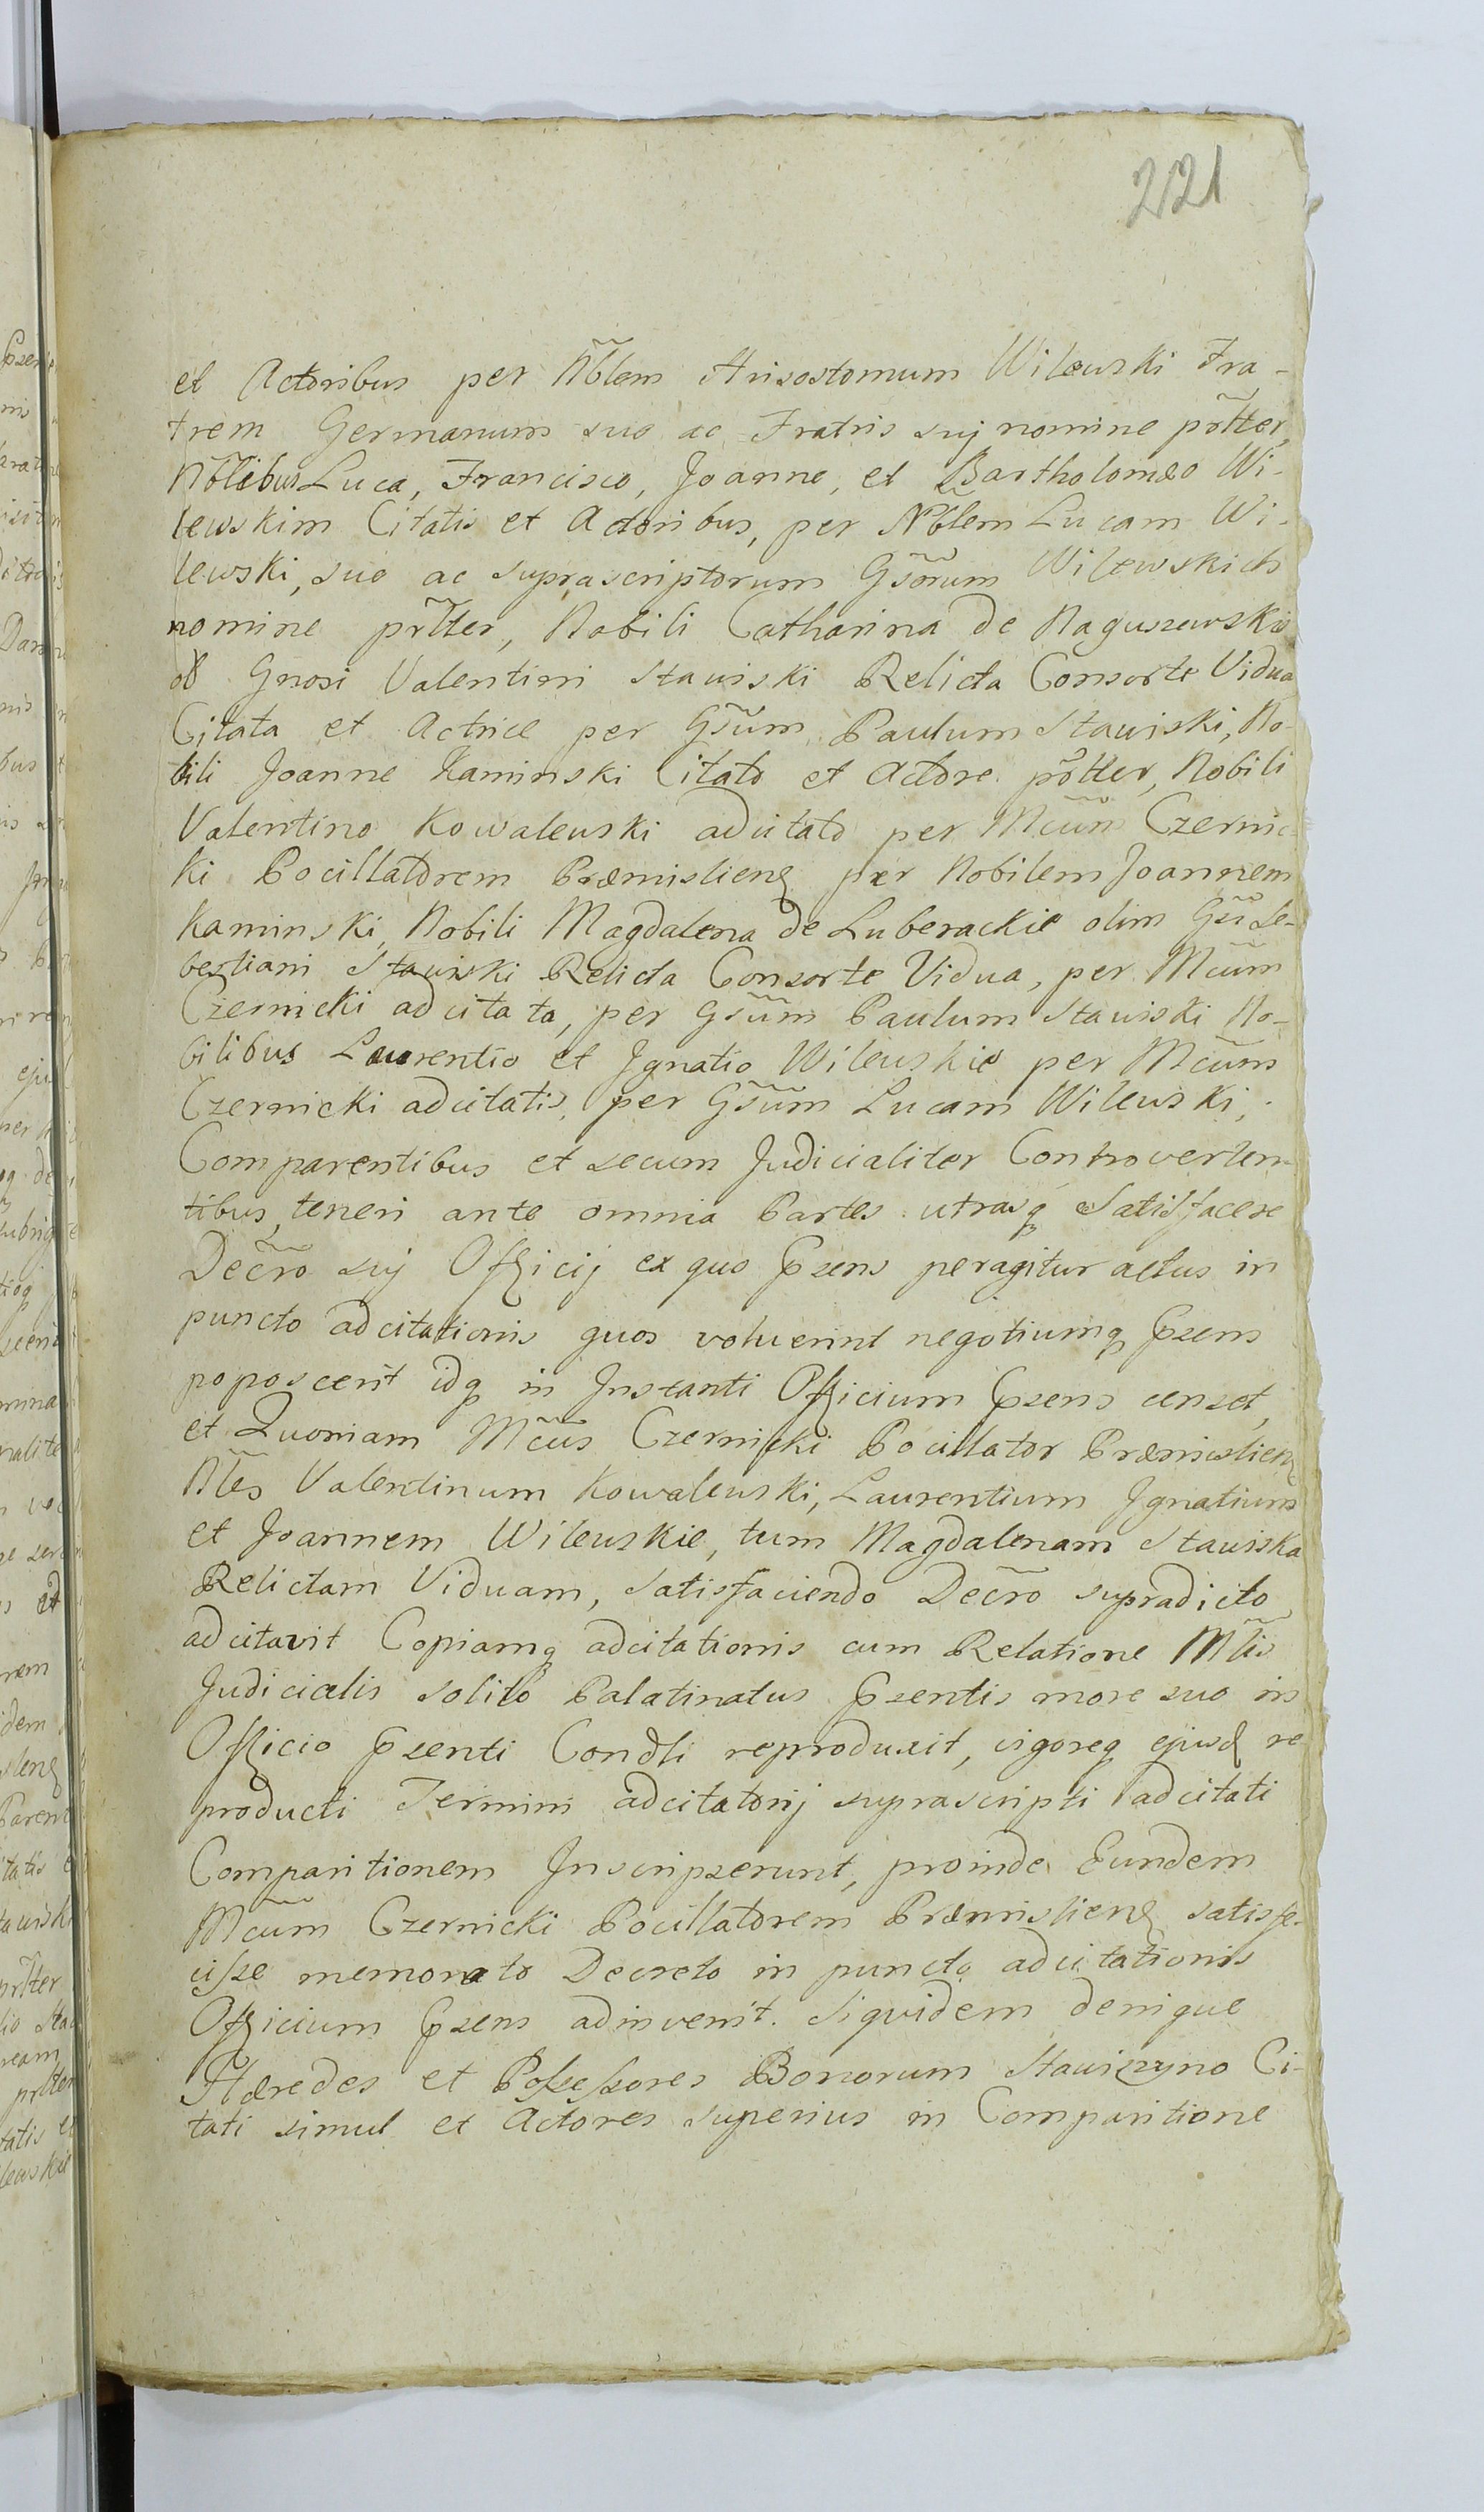 221
et Actoribus per Nõblem Hrisostomum Wilewski Fra-
trem Germanum suo ac Fratris suj nomine põtter,
Nõblibus Luca, Francisco, Joanne, et Bartholomæo Wi-
lewskim Citatis et Actoribus, per Nõblem Lucam Wi-
lewski, suo ac suprascriptorum Gsõrum Wilewskich
nomine prr̃tter, Nobili Catharina de Naguszewskie
Gnosi Valentini Stawiski Relicta Consorte Vidua
Citata et Actrice per Gsũm Paulum Stawiski, No-
bili Joanne Kaminski Citato et Actore põtter, Nobili
Valentino Kowalewski adcitato per Mcũm Czernic-
ki Pocillatorem Præmislienꝫ per Nobilem Joannem
Kaminski, Nobili Magdalena de Luberackie olim Gsĩ Se-
bestiani Stawiski Relicta Consorte Vidua, per Mcũm
Czernicki adcitata, per Gsũm Paulum Stawiski No-
bilibus Laurentio et Jgnatio Wilewskie per Mcũm
Czernicki adcitatis, per Gsũm Lucam Wilewski,
Comparentibus et secum Judicialiter Controverten-
tibus, teneri ante omnia Partes utrasq Satisfacere
Decr̃o suj Officij ex quo Pzens peragitur actus in
puncto adcitationis quos voluerint negotiumq Pzens
poposcerit idq in Instanti Officium Pzens censet,
et Quoniam Mcũs Czernicki Pocillator Præmislienꝫ
Nl̃es Valentinum Kowalewski, Laurentium Jgnatium
et Joannem Wilewskie, tum Magdalenam Stawiska
Relictam Viduam, Satisfaciendo Decr̃o supradicto
adcitavit Copiamq adcitationis cum Relatione Ml̃is
Judicialis solito Palatinatus Pzentis more suo in
Officio Pzenti Condli reproduxit, vigoreq ejusd re
producti Termini adcitatorij suprascripti adcitati
Comparitionem Inscripserunt, proinde Eundem
Mcũm Czernicki Pocillatorem Præmislienꝫ satisfe-
cisse memorato Decreto in puncto adcitationis
Officium Pzens adinvenit. Siquidem denique
Hæredes et Possessores Bonorum Stawiszyno Ci-
tati simul et Actores superius in Comparitione